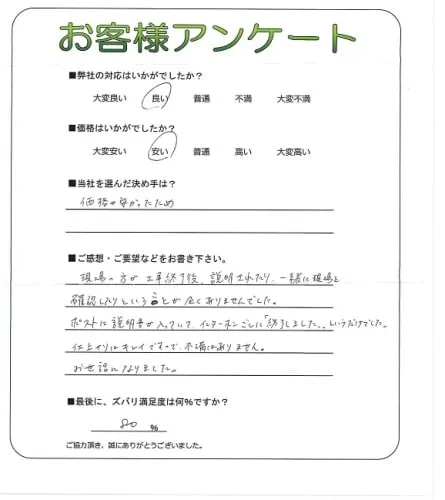 お客様アンケート
■弊社の対応はいかがでしたか？
大変良い 良い 普通 不満 大変不満
■価格はいかがでしたか？
大変安い 安い 普通 高い 大変高い
■当社を選んだ決め手は？
価格が安かったため
■ご感想・ご要望などをお書き下さい。
現場の方が工事終了後、説明されたり、一緒に現場を
確認したりということが全くありませんでした。
ポストに説明書が入っていて、インターホンごしに「終了しました。」というだけでした。
仕上がりはキレイですので、不満はありません。
お世話になりました。
■最後に、ズバリ満足度は何%ですか？
80 %
ご協力頂き、誠にありがとうございました。